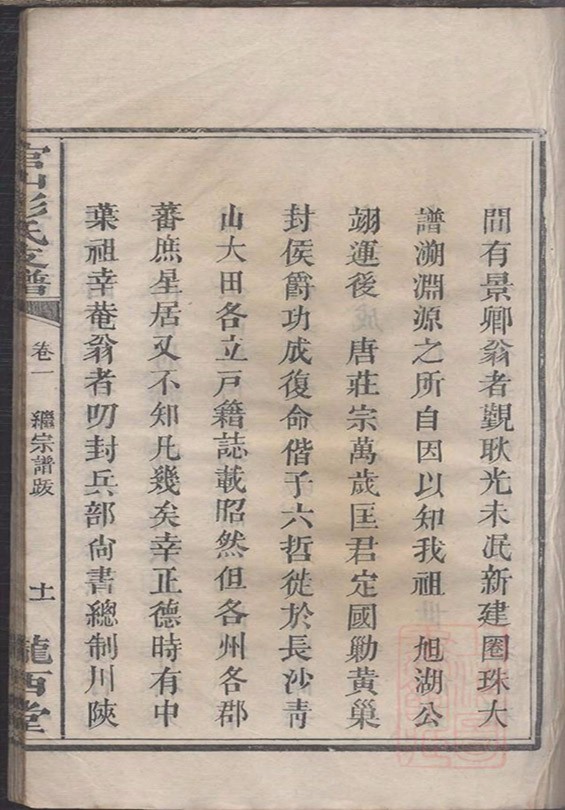 間有景卿翁者覩耿光未泯新建圈珠大
譜溯淵源之所自因以知我祖 旭湖公
翊運後 唐莊宗萬歲匡君定國勦黄巢
封侯爵功成復命偕子六哲徙於長沙青
山大田各立戸籍誌載昭然但各州各郡
蕃庶星居又不知凡幾矣幸正德時有中
葉祖幸菴翁者叨封兵部尙書總制川陝
官山彭氏支譜
卷一 繼宗譜跋
十一
隴西堂